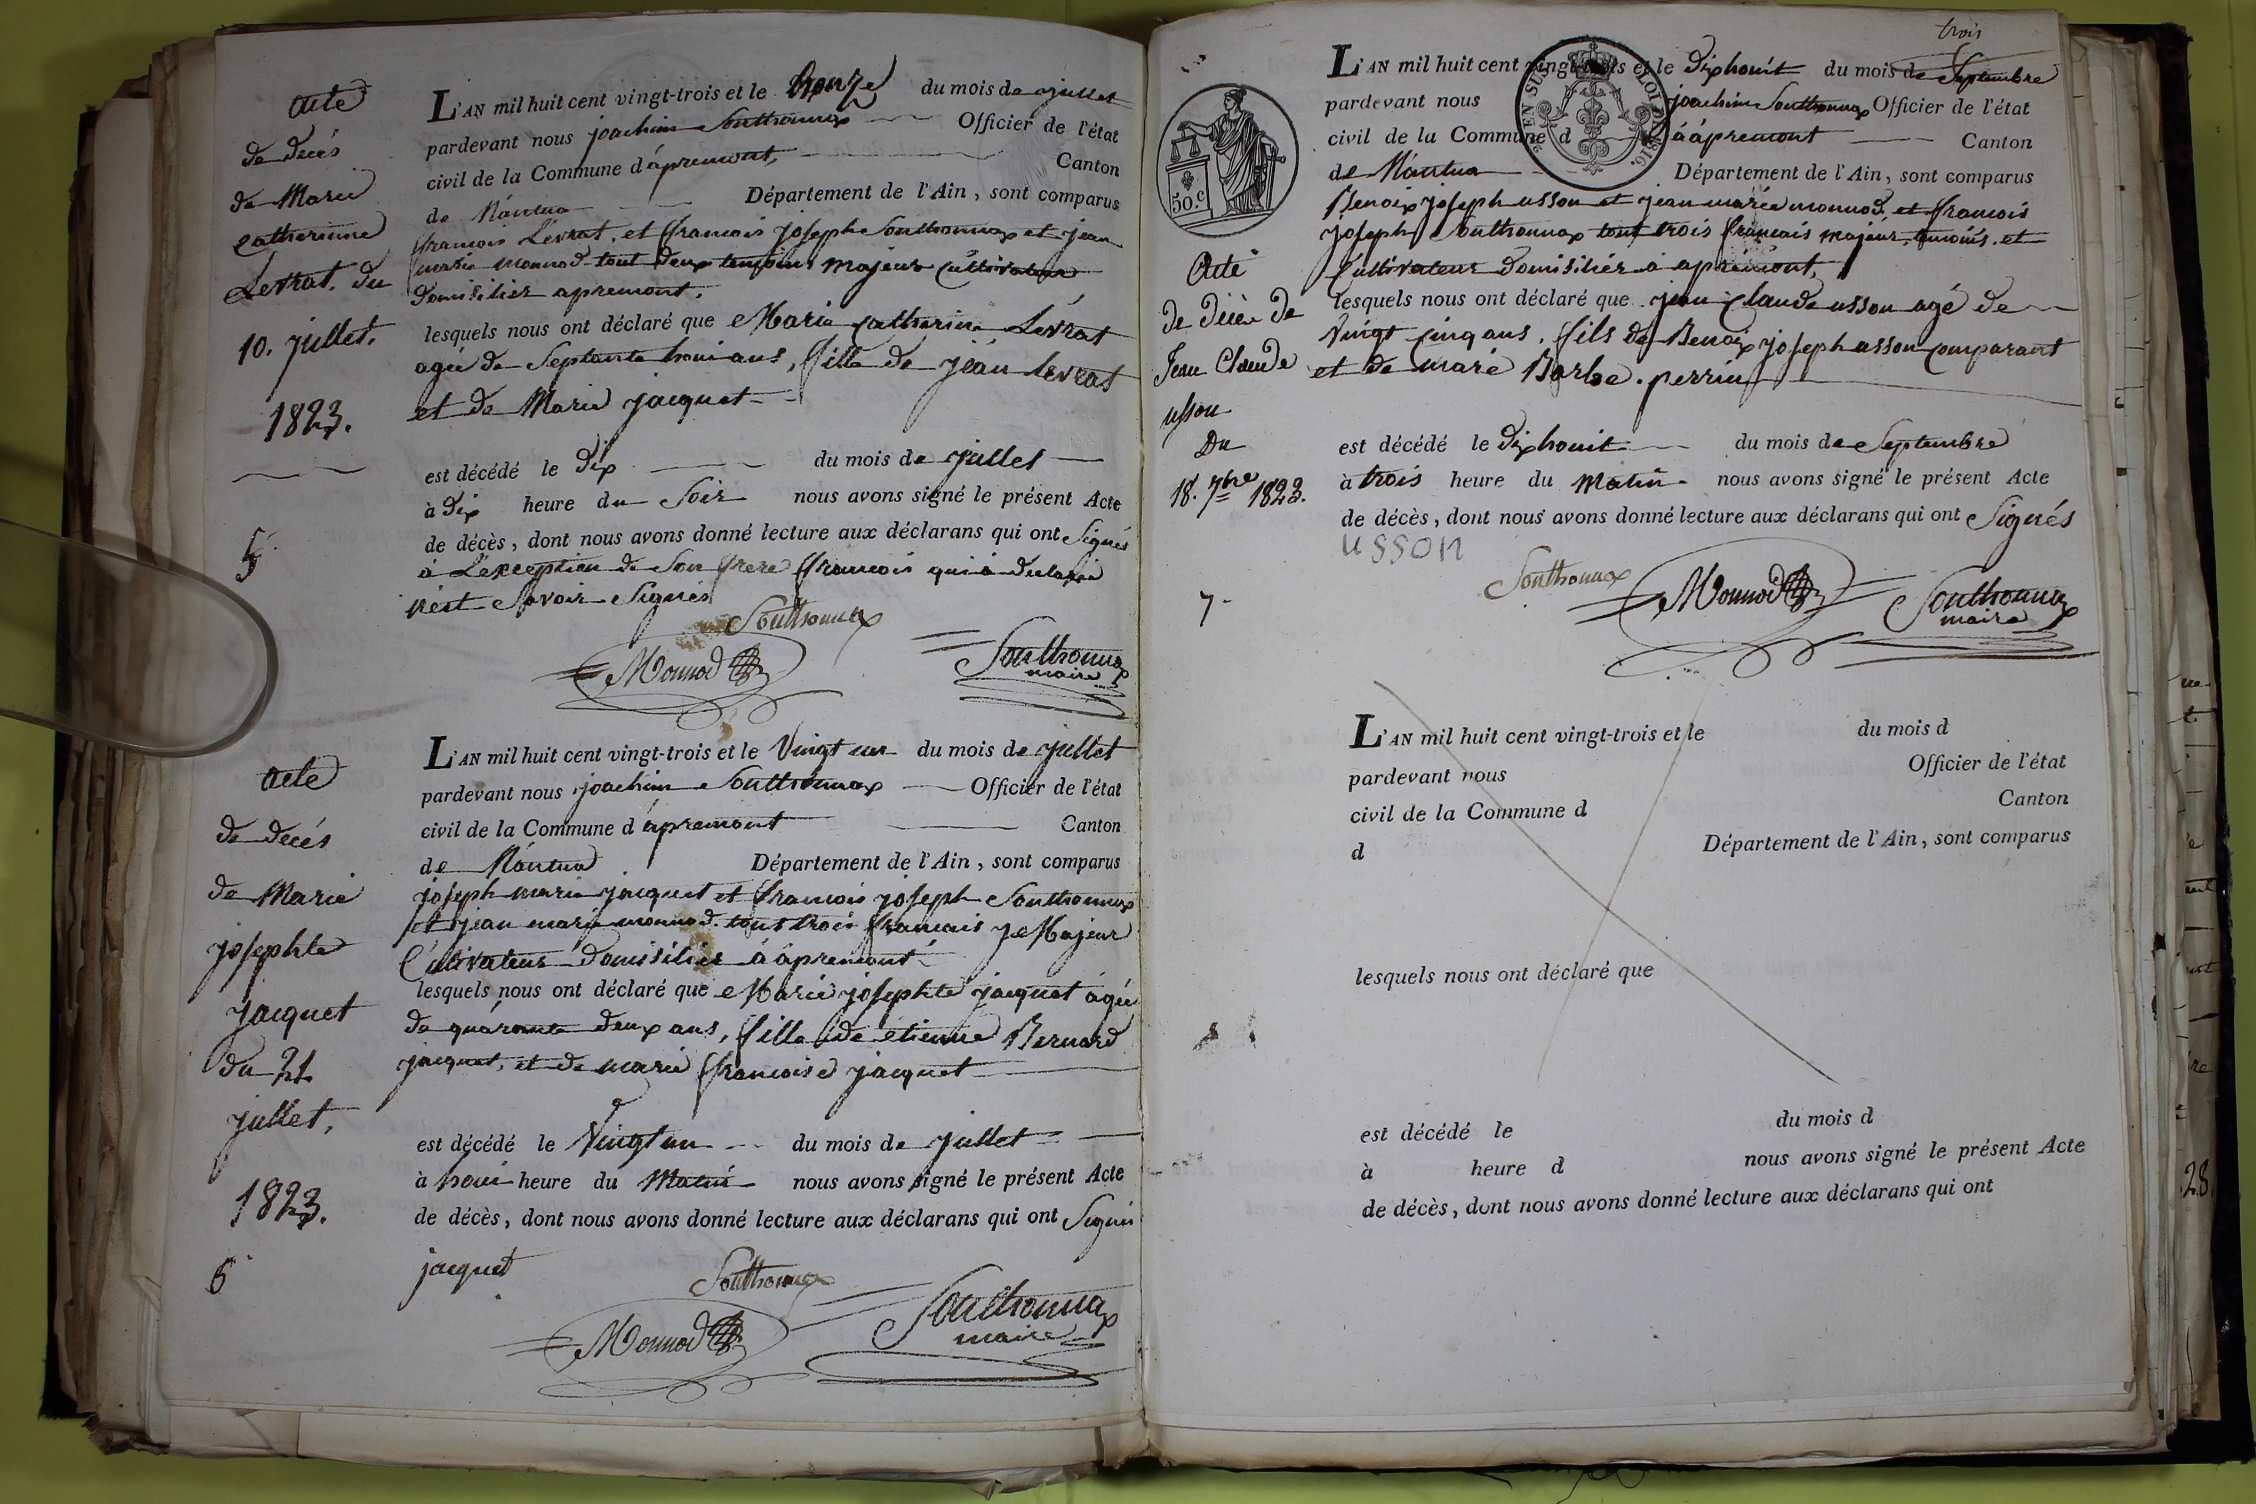 acte
de decés
de Marie
catherinne
Levrat. du
10. juillet.
1823.
5
L'AN mil huit cent vingt-trois et le onze du mois de juillet
pardevant nous joachim Southonnax Officier de l'état
civil de la Commune d'ápremont, Canton
de Nántua Département de l'Ain, sont comparus
francois Levrat. et francois joseph Southonnax et jean
marie monnod tout deux temoins majeur Cultivateur
domisiliés apremont.
lesquels nous ont déclaré que Marie catherine Levrat
agée de Septante ans, fille de jéan Levrat
et de Marie jacquet
est décédé le dix du mois de juillet
à dix heure du Soir nous avons signé le présent Acte
de décès, dont nous avons donné lecture aux déclarans qui ont Signés
á L'exception de Son frere francois qui á declaré
Savoir Signés
Southonnax
Monnod
Southonnax
maire
acte
de decés
de Marie
josephte
jacquet
du 21
juillet.
1823.
6
L'AN mil huit cent vingt-trois et le Vingt un du mois de juillet
pardevant nous joachim Southonnax Officier de l'état
civil de la Commune d ápremont Canton
de Nántua Département de l'Ain, sont comparus
joseph marie jacquet et francois joseph Southonnax
et jean marie monnod. tous trois francais Majeur
Cultivateur domisiliés á ápremont
lesquels nous ont déclaré que Marie josephte jacquet ágée
de quárante deux ans, fille de étienne Bernard
jacquet, et de marie francoise jacquet
est décédé le Vingt un du mois de juillet
à heure du Matin nous avons signé le présent Acte
de décès, dont nous avons donné lecture aux déclarans qui ont Signés
jacquet
Southonnax
Monnod
Southonnax
maire
trois
50.c
EN SUS LOI DE 1816.
Acte
de décè de
Jean Claude
usson
Du
18. 7bre 1823.
7
L'AN mil huit cent vingt-trois et le dixhouit du mois de Septembre
pardevant nous joachim Southonnax Officier de l'état
civil de la Commune d áápremont Canton
de Nántua Département de l'Ain, sont comparus
Benoix joseph usson et jean marie monnod, et francois
joseph Southonnax tout trois francais majeur, temoins. et
Cultivateur domisiliés á apremont,
lesquels nous ont déclaré que jean claude usson agé de
Vingt cinq ans, fils de Benoix joseph usson comparant
et de marie Barbe. perrin
est décédé le dixhouit du mois de Septembre
à trois heure du Matin nous avons signé le présent Acte
de décès, dont nous avons donné lecture aux déclarans qui ont Signés
usson
Southonnax
Monnod
Southonnax
maire
L'AN mil huit cent vingt-trois et le du mois d
pardevant nous Officier de l'état
civil de la Commune d Canton
d Département de l'Ain, sont comparus
lesquels nous ont déclaré que
est décédé le du mois d
à heure d nous avons signé le présent Acte
de décès, dont nous avons donné lecture aux déclarans qui ont
28.